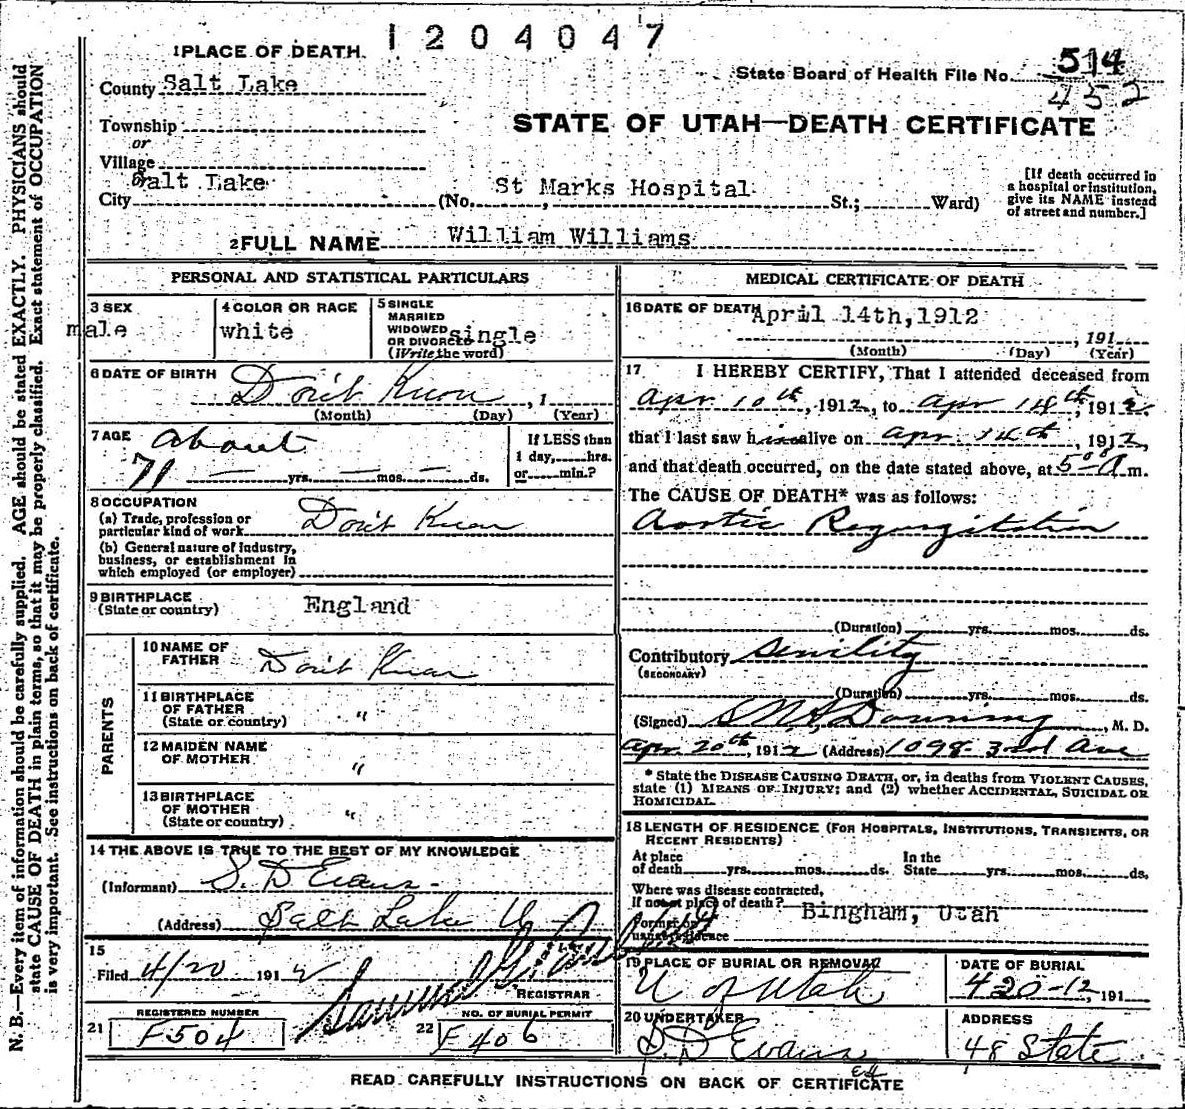 1204047
1 PLACE OF DEATH
State Board of Health File No. 514
452
County Salt Lake
Township
or
Village
or
City Salt Lake (No. St Marks Hospital St.; Ward)
[If death occurred in
a hospital or institution,
give its NAME instead
of street and number.]
STATE OF UTAH—DEATH CERTIFICATE
2 FULL NAME William Williams
PERSONAL AND STATISTICAL PARTICULARS
3 SEX
male
4 COLOR OR RACE
white
5 SINGLE
MARRIED
WIDOWED
OR DIVORCED single
(Write the word)
6 DATE OF BIRTH Don't Know, 1
(Month) (Day) (Year)
7 AGE about
71 — yrs. — mos. — ds.
If LESS than
1 day, hrs.
or min.?
8 OCCUPATION
(a) Trade, profession or
particular kind of work Don't Know
(b) General nature of industry,
business, or establishment in
which employed (or employer)
9 BIRTHPLACE
(State or country) England
PARENTS
10 NAME OF
FATHER Don't Know
11 BIRTHPLACE
OF FATHER
(State or country) "
12 MAIDEN NAME
OF MOTHER "
13 BIRTHPLACE
OF MOTHER
(State or country) "
14 THE ABOVE IS TRUE TO THE BEST OF MY KNOWLEDGE
(Informant) S. D Evans
(Address) Salt Lake
15
Filed 4/20 1912
REGISTRAR
REGISTERED NUMBER
21 F504
NO. OF BURIAL PERMIT
22 F406
MEDICAL CERTIFICATE OF DEATH
16 DATE OF DEATH April 14th, 1912
, 191
(Month) (Day) (Year)
17 I HEREBY CERTIFY, That I attended deceased from
Apr 10th, 1912, to Apr 14th, 1912,
that I last saw him alive on Apr. 14th, 1912,
and that death occurred, on the date stated above, at 5 A m.
The CAUSE OF DEATH* was as follows:
Aortic Regurgitation
(Duration) yrs. mos. ds.
Contributory Senility
(SECONDARY)
(Duration) yrs. mos. ds.
(Signed) Downing, M. D.
Apr 20th, 1912 (Address) 1098 3rd Ave
* State the DISEASE CAUSING DEATH, or, in deaths from VIOLENT CAUSES,
state (1) MEANS OF INJURY; and (2) whether ACCIDENTAL, SUICIDAL OR
HOMICIDAL.
18 LENGTH OF RESIDENCE (FOR HOSPITALS, INSTITUTIONS, TRANSIENTS, OR
RECENT RESIDENTS)
At place
of death yrs. mos. ds.
In the
State yrs. mos. ds.
Where was disease contracted,
If not at place of death?
Former or
usual residence Bingham, Utah
19 PLACE OF BURIAL OR REMOVAL
U of Utah
DATE OF BURIAL
4 20-12, 191
20 UNDERTAKER
S. D Evans
ADDRESS
48 State
READ CAREFULLY INSTRUCTIONS ON BACK OF CERTIFICATE
N. B.—Every item of information should be carefully supplied. AGE should be stated EXACTLY. PHYSICIANS should
state CAUSE OF DEATH in plain terms, so that it may be properly classified. Exact statement of OCCUPATION
is very important. See instructions on back of certificate.